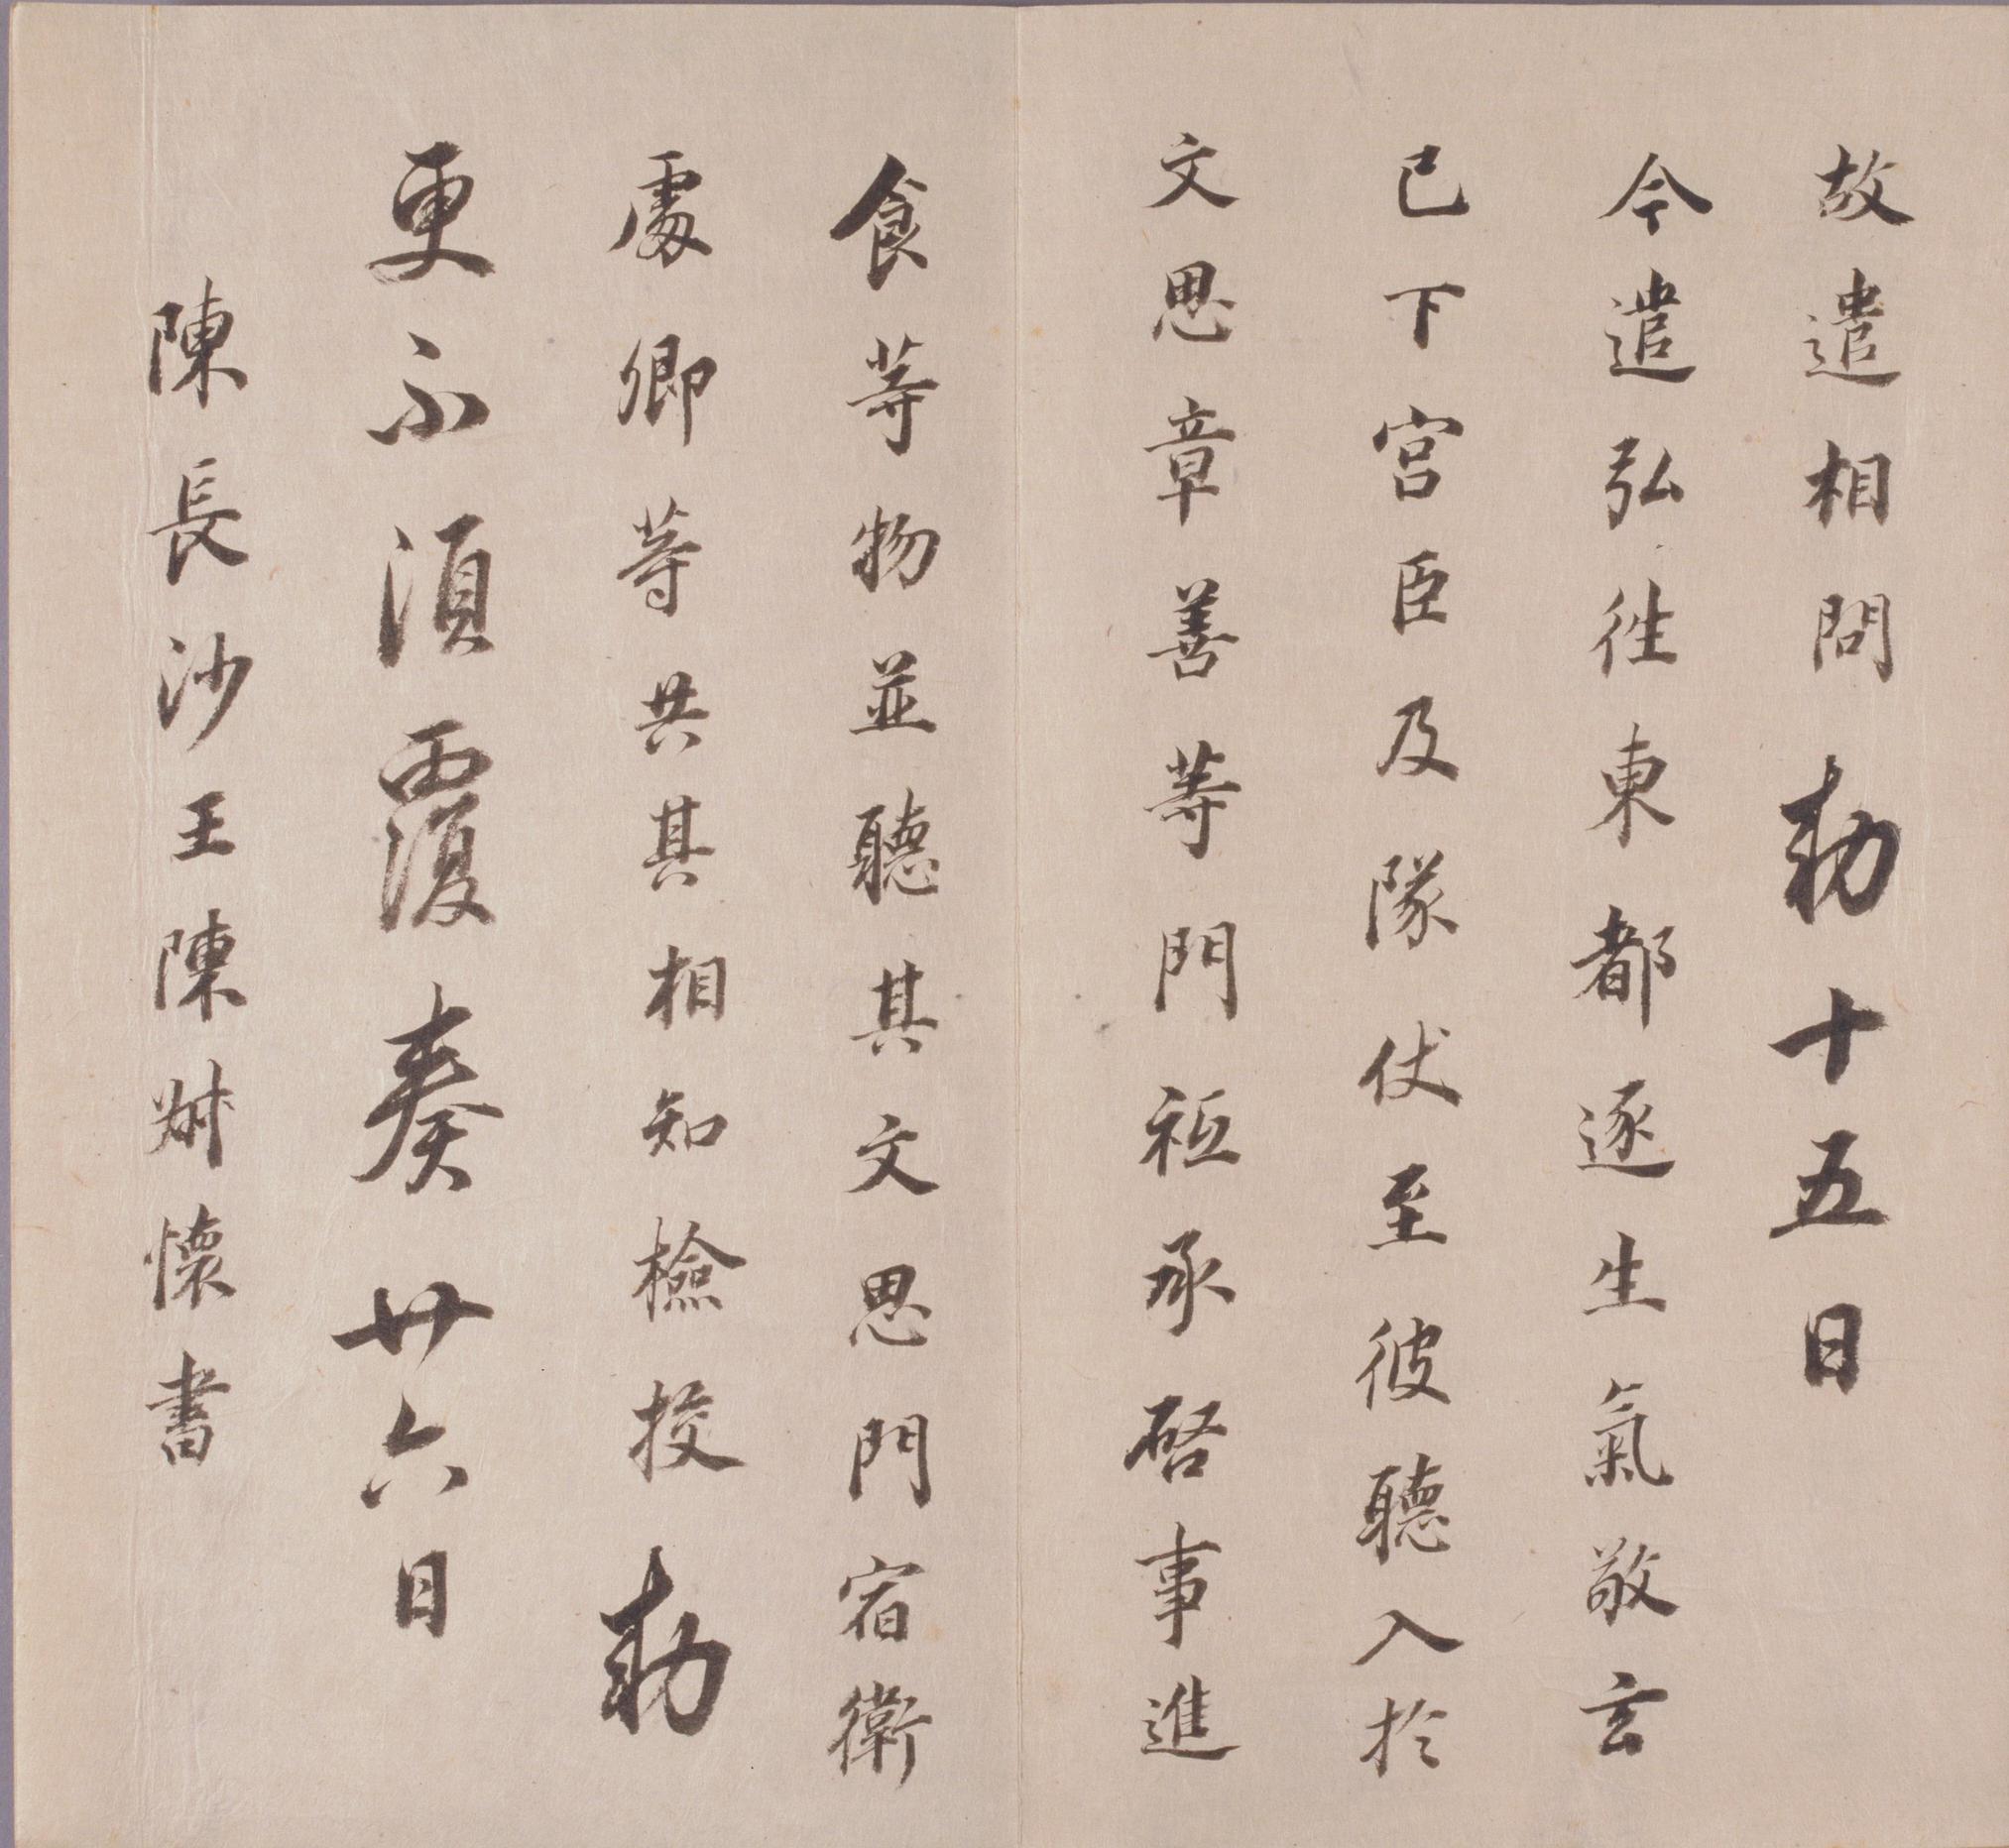 故遣相問勅十五日
今遣弘往東都逐生氣敬玄
已下宮臣及隊仗至彼聽入於
文思章善等門祗承啓事進
食等物並聽其文思門宿衛
處卿等共其相知檢校勅
更不須覆奏廿六日
陳長沙王陳叔懷書